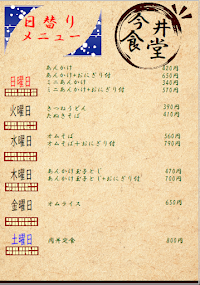 日替り
メニュー
今井
食堂
日曜日
あんかけ 420円
あんかけ+おにぎり付 650円
ミニあんかけ 340円
ミニあんかけ+おにぎり付 570円
火曜日
きつねうどん 390円
たぬきそば 470円
水曜日
オムそば 560円
オムそば+おにぎり付 790円
木曜日
あんかけ玉子とじ 470円
あんかけ玉子とじ+おにぎり付 700円
金曜日
オムライス 650円
土曜日
肉丼定食 800円